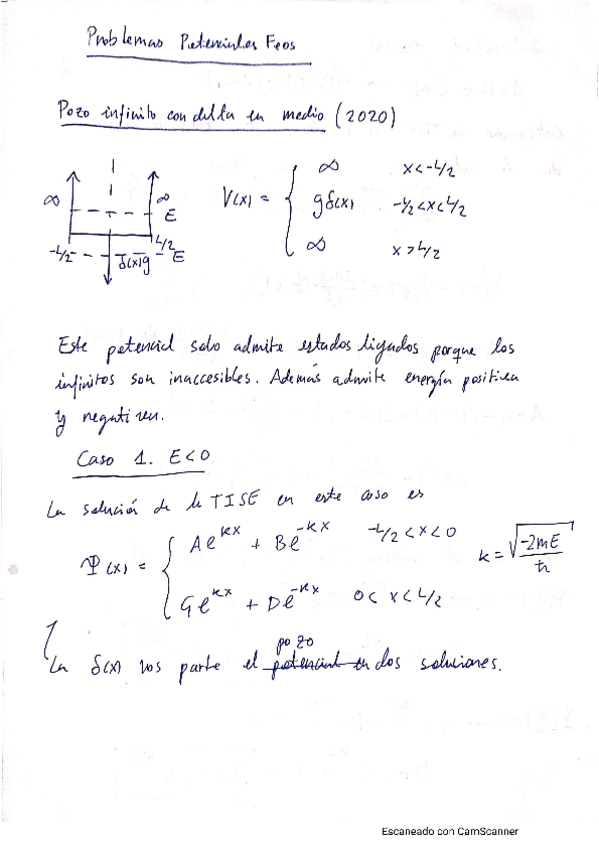 Problemas Potenciales Feos
Pozo infinito con delta en medio (2020)
∞ ∞ E
-L/2 L/2 δ(x)g E
V(x) = { ∞ x<-L/2
gδ(x) -L/2<x<L/2
∞ x>L/2
Este potencial solo admite estados ligados porque los
infinitos son inaccesibles. Además admite energía positiva
y negativa.
Caso 1. E<0
La solución de la TISE en este caso es
Ψ(x) = { Ae^{kx} + Be^{-kx} -L/2<x<0
Ge^{kx} + De^{-kx} 0<x<L/2
k = √(-2mE)/ħ
pozo
La δ(x) nos parte el potencial en dos soluciones.
Escaneado con CamScanner